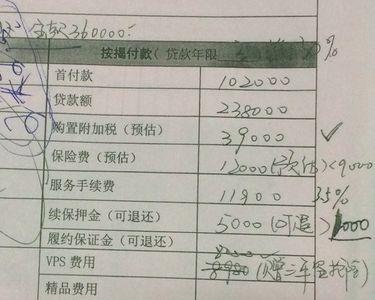 全款360000:
按揭付款(贷款年限 30%
首付款 102000
贷款额 238000
购置附加税(预估) 39000 ✓
保险费(预估) 12000(预估)<9000
服务手续费 11900 3.5%
续保押金(可退还) 5000(可退)
履约保证金(可退还)
VPS 费用 8980 (赠二年盗抢险)
精品费用